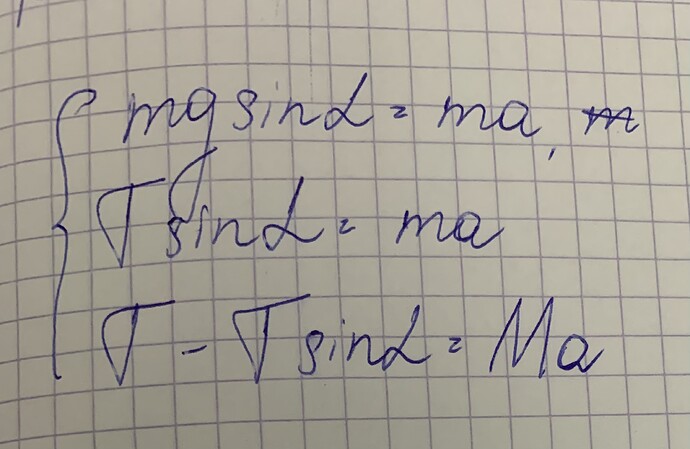 mg sinα = ma,
T sinα = ma
T - T sinα = Ma